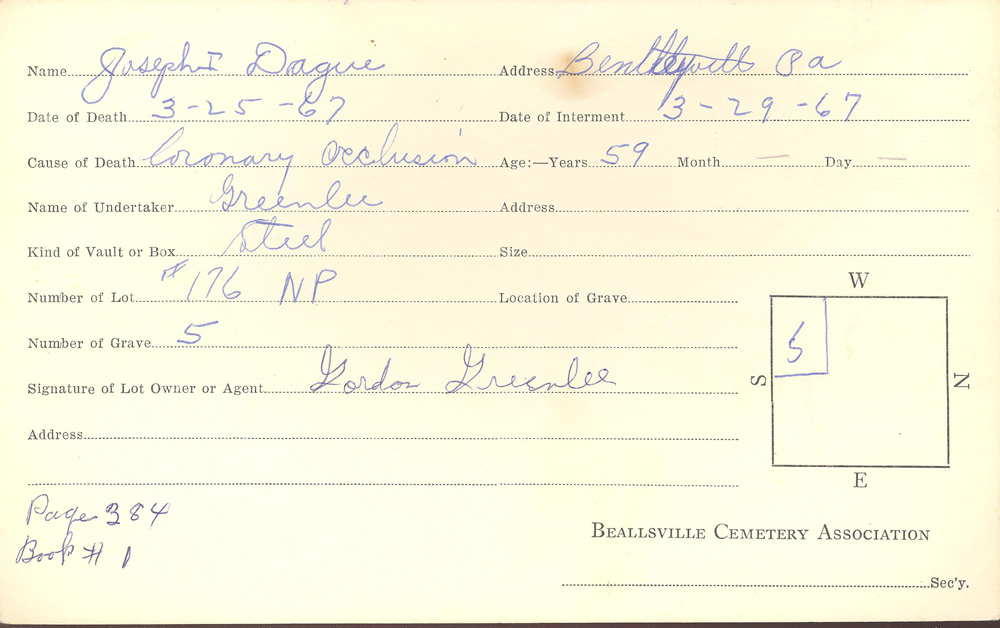 Name Joseph I Dague Address Pa
Date of Death 3-25-67 Date of Interment 3-29-67
Cause of Death Coronary Occlusion Age:—Years 59 Month — Day —
Name of Undertaker Greenlee Address
Kind of Vault or Box Steel Size
Number of Lot #176 NP Location of Grave
Number of Grave 5
Signature of Lot Owner or Agent Gordon Greenlee
Address
W
S 5 N
E
Page 384
Book # 1
BEALLSVILLE CEMETERY ASSOCIATION
Sec'y.